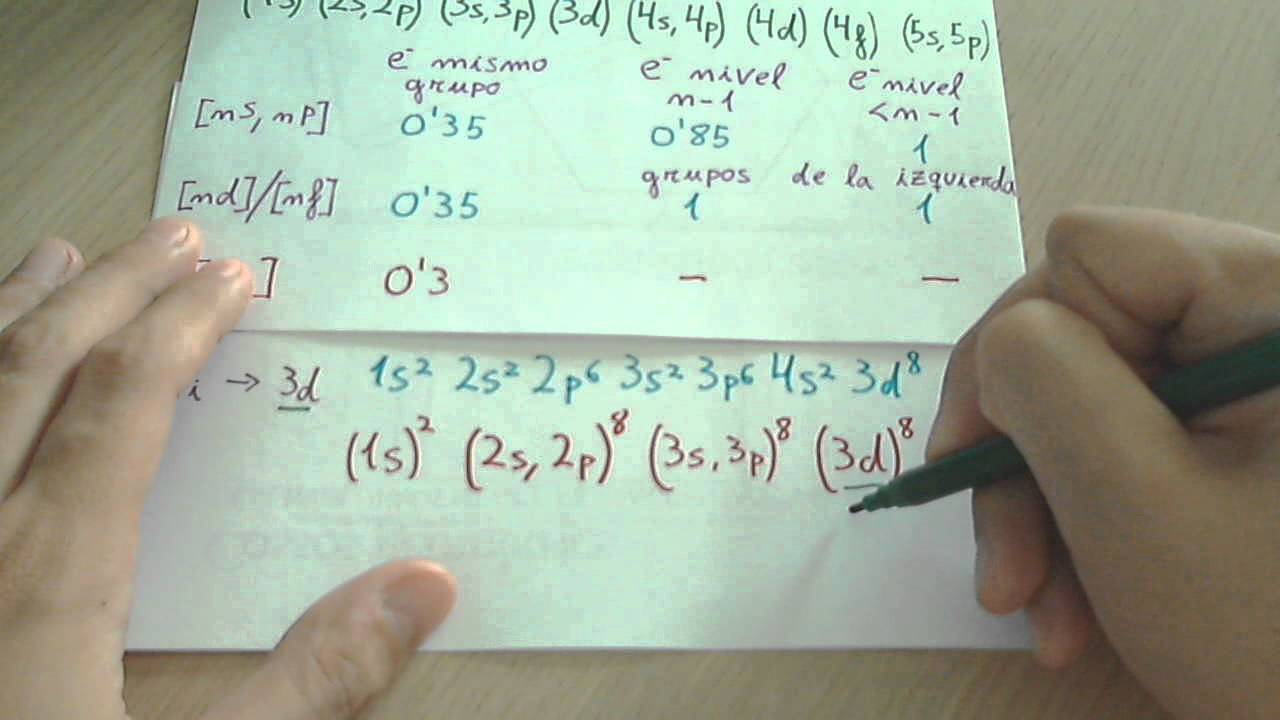 (1s) (2s, 2p) (3s, 3p) (3d) (4s, 4p) (4d) (4f) (5s, 5p)
e⁻ mismo grupo
e⁻ nivel n-1
e⁻ nivel <n-1
[ns, np] 0'35 0'85 1
grupos de la izquierda
[nd]/[nf] 0'35 1 1
] 0'3 – –
i → 3d 1s² 2s² 2p⁶ 3s² 3p⁶ 4s² 3d⁸
(1s)² (2s, 2p)⁸ (3s, 3p)⁸ (3d)⁸